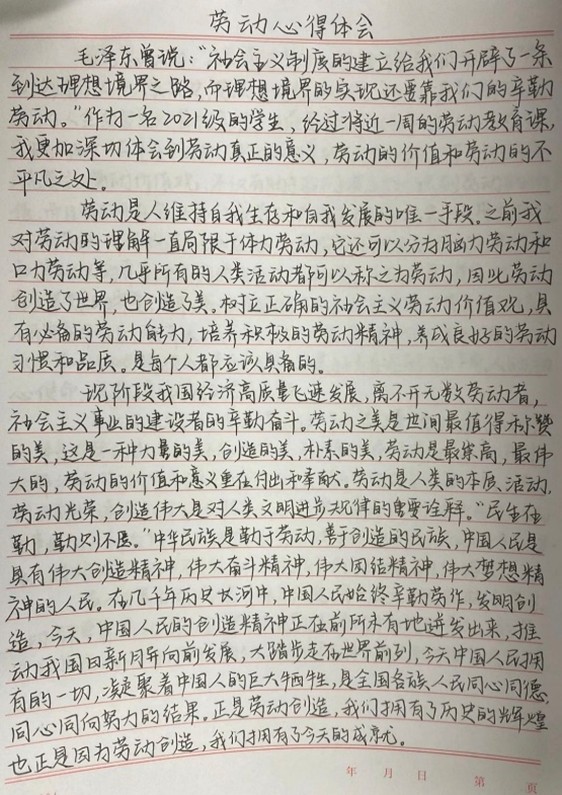 劳动心得体会
毛泽东曾说:“社会主义制度的建立给我们开辟了一条
到达理想境界之路,而理想境界的实现还要靠我们的辛勤
劳动。”作为一名2021级的学生,经过将近一周的劳动教育课,
我更加深切体会到劳动真正的意义,劳动的价值和劳动的不
平凡之处。
劳动是人维持自我生存和自我发展的唯一手段。之前我
对劳动的理解一直局限于体力劳动,它还可以分为脑力劳动和
口力劳动等,几乎所有的人类活动都可以称之为劳动,因此劳动
创造了世界,也创造了美。树立正确的社会主义劳动价值观,具
有必备的劳动能力,培养积极的劳动精神,养成良好的劳动
习惯和品质。是每个人都应该具备的。
现阶段我国经济高质量飞速发展,离不开无数劳动者,
社会主义事业的建设者的辛勤奋斗。劳动之美是世间最值得称赞
的美,这是一种力量的美,创造的美,朴素的美,劳动是最崇高,最伟
大的,劳动的价值和意义重在付出和奉献。劳动是人类的本质活动,
劳动光荣,创造伟大是对人类文明进步规律的重要诠释。“民生在
勤,勤则不匮。”中华民族是勤于劳动,善于创造的民族,中国人民是
具有伟大创造精神,伟大奋斗精神,伟大团结精神,伟大梦想精
神的人民。在几千年历史长河中,中国人民始终辛勤劳作,发明创
造,今天,中国人民的创造精神正在前所未有地迸发出来,推
动我国日新月异向前发展,大踏步走在世界前列,今天中国人民拥
有的一切,凝聚着中国人的巨大牺牲,是全国各族人民同心同德,
同心同向努力的结果。正是劳动创造,我们拥有了历史的辉煌
也正是因为劳动创造,我们拥有了今天的成就。
年 月 日 第 页